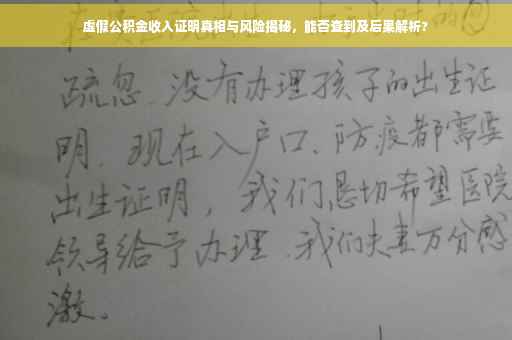 虚假公积金收入证明真相与风险揭秘，能否查到及后果解析？
疏忽．没有办理孩子的出生证
明．现在入户口、防疫都需要
出生证明，我们恳切希望医院
领导给予办理．我们夫妻万分感
激。